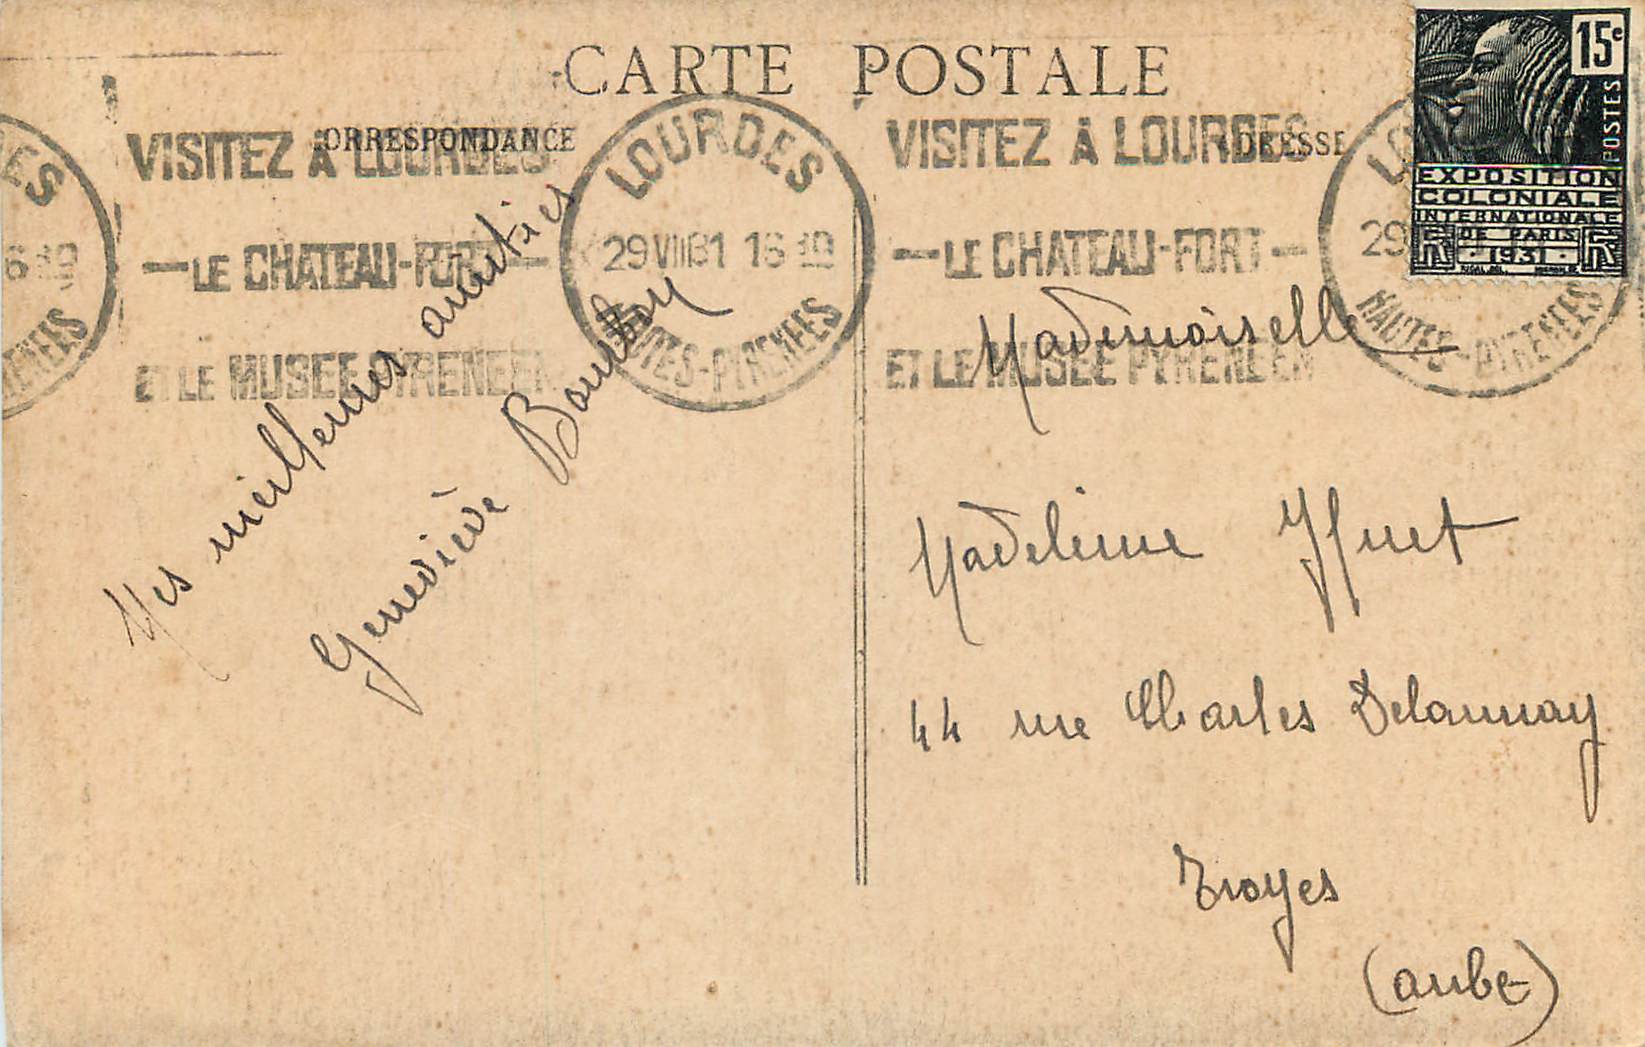 CARTE POSTALE
CORRESPONDANCE
ADRESSE
VISITEZ À LOURDES
- LE CHATEAU-FORT -
ET LE MUSEE PYRENEEN
LOURDES
29 VIII 31 16
HAUTES-PYRENEES
VISITEZ À LOURDES
- LE CHATEAU-FORT -
ET LE MUSEE PYRENEEN
15c
POSTES
EXPOSITION
COLONIALE
INTERNATIONALE
DE PARIS
1931
Mes meilleures amitiés
Geneviève
Mademoiselle
Madeleine
44 rue Charles Delaunay
Troyes
(Aube)